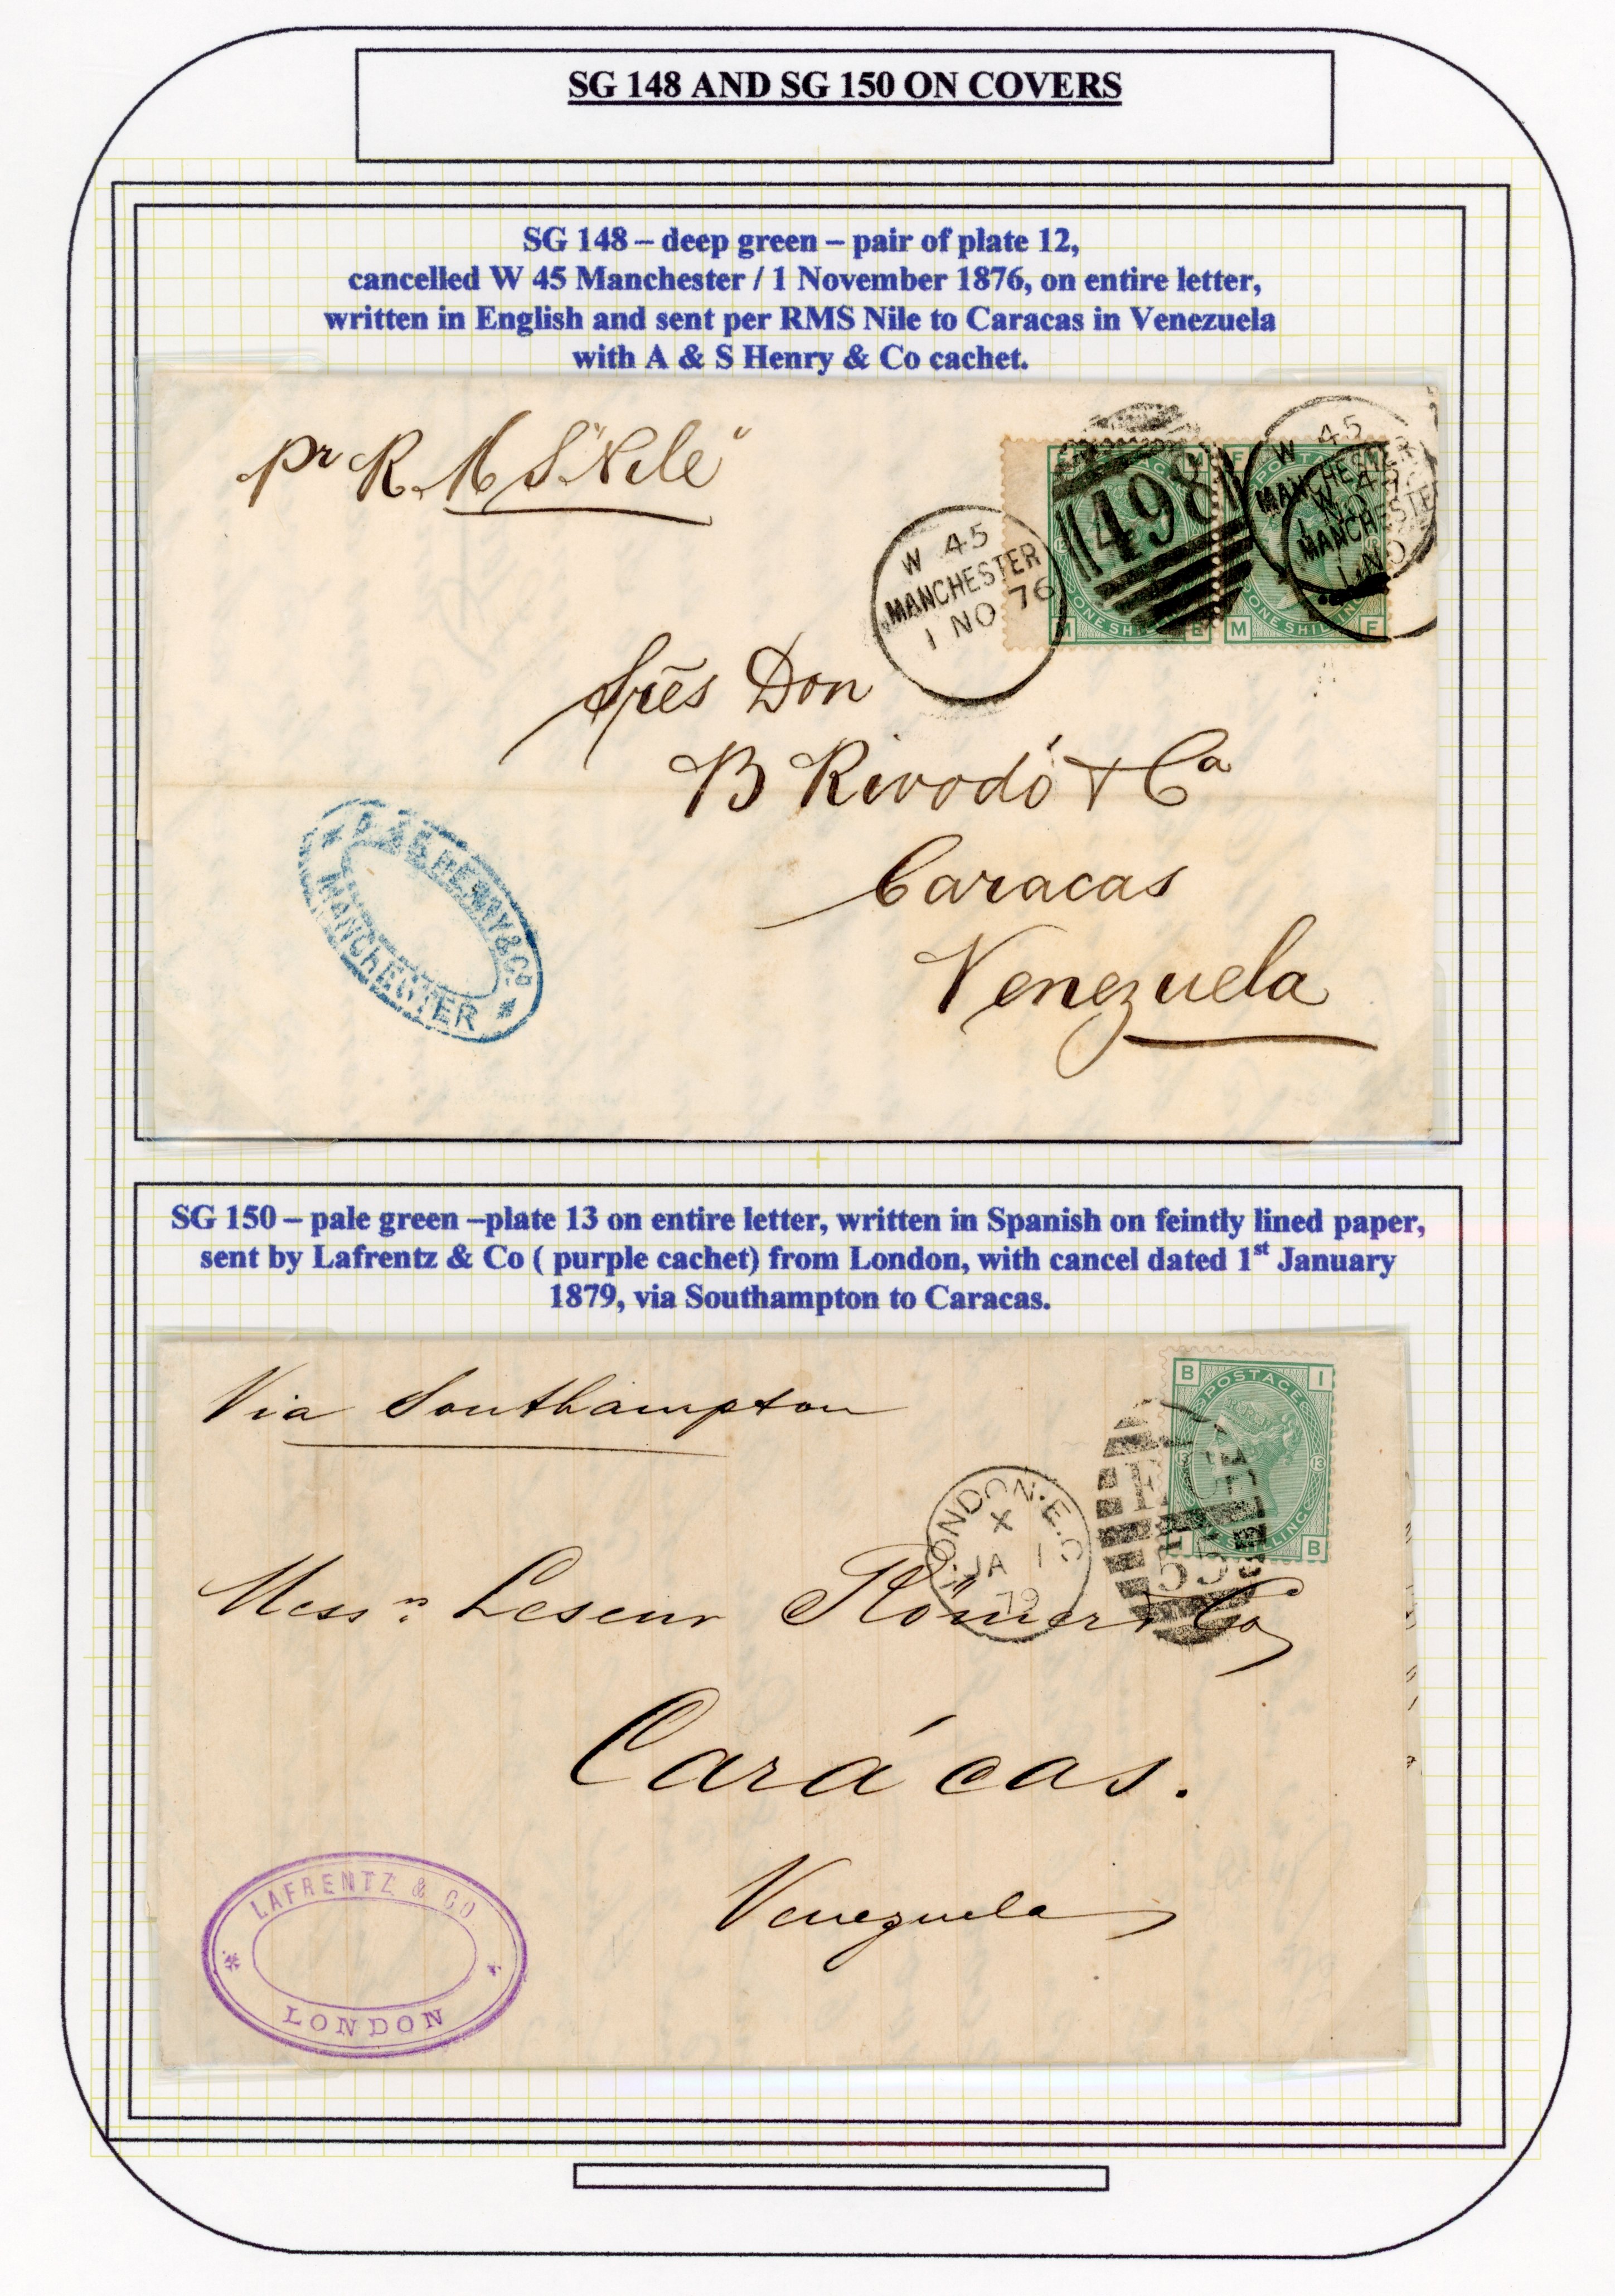 SG 148 AND SG 150 ON COVERS
SG 148 – deep green – pair of plate 12,
cancelled W 45 Manchester / 1 November 1876, on entire letter,
written in English and sent per RMS Nile to Caracas in Venezuela
with A & S Henry & Co cachet.
pr R. M S "Nile"
W 45
MANCHESTER
1 NO 76
498
W 45
MANCHESTER
W 45
MANCHESTER
1 NO
M ONE SHILLING E
M ONE SHILLING F
Don
B Rivodó & Ca
Caracas
Venezuela
A & S HENRY & Co
MANCHESTER
SG 150 – pale green –plate 13 on entire letter, written in Spanish on feintly lined paper,
sent by Lafrentz & Co ( purple cachet) from London, with cancel dated 1st January
1879, via Southampton to Caracas.
Via Southampton
B POSTAGE I
13 13
SHILLING B
LONDON·E.C
X
JA 1
79
Messrs Leseur Römer & Co
Carácas.
Venezuela
LAFRENTZ & CO
LONDON